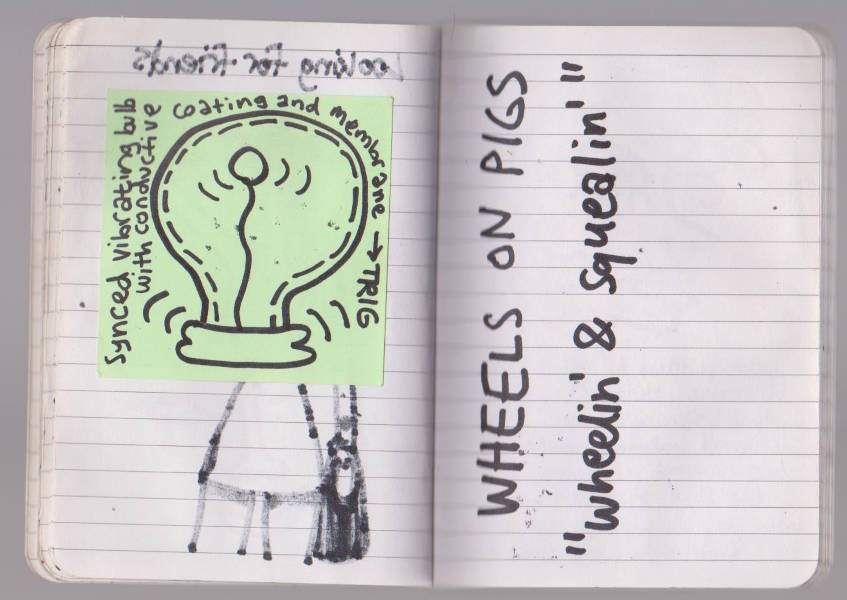 Looking for friends
Synced vibrating bulb
with conductive
coating and membrane → TRIG
WHEELS ON PIGS
"wheelin' & squealin'"